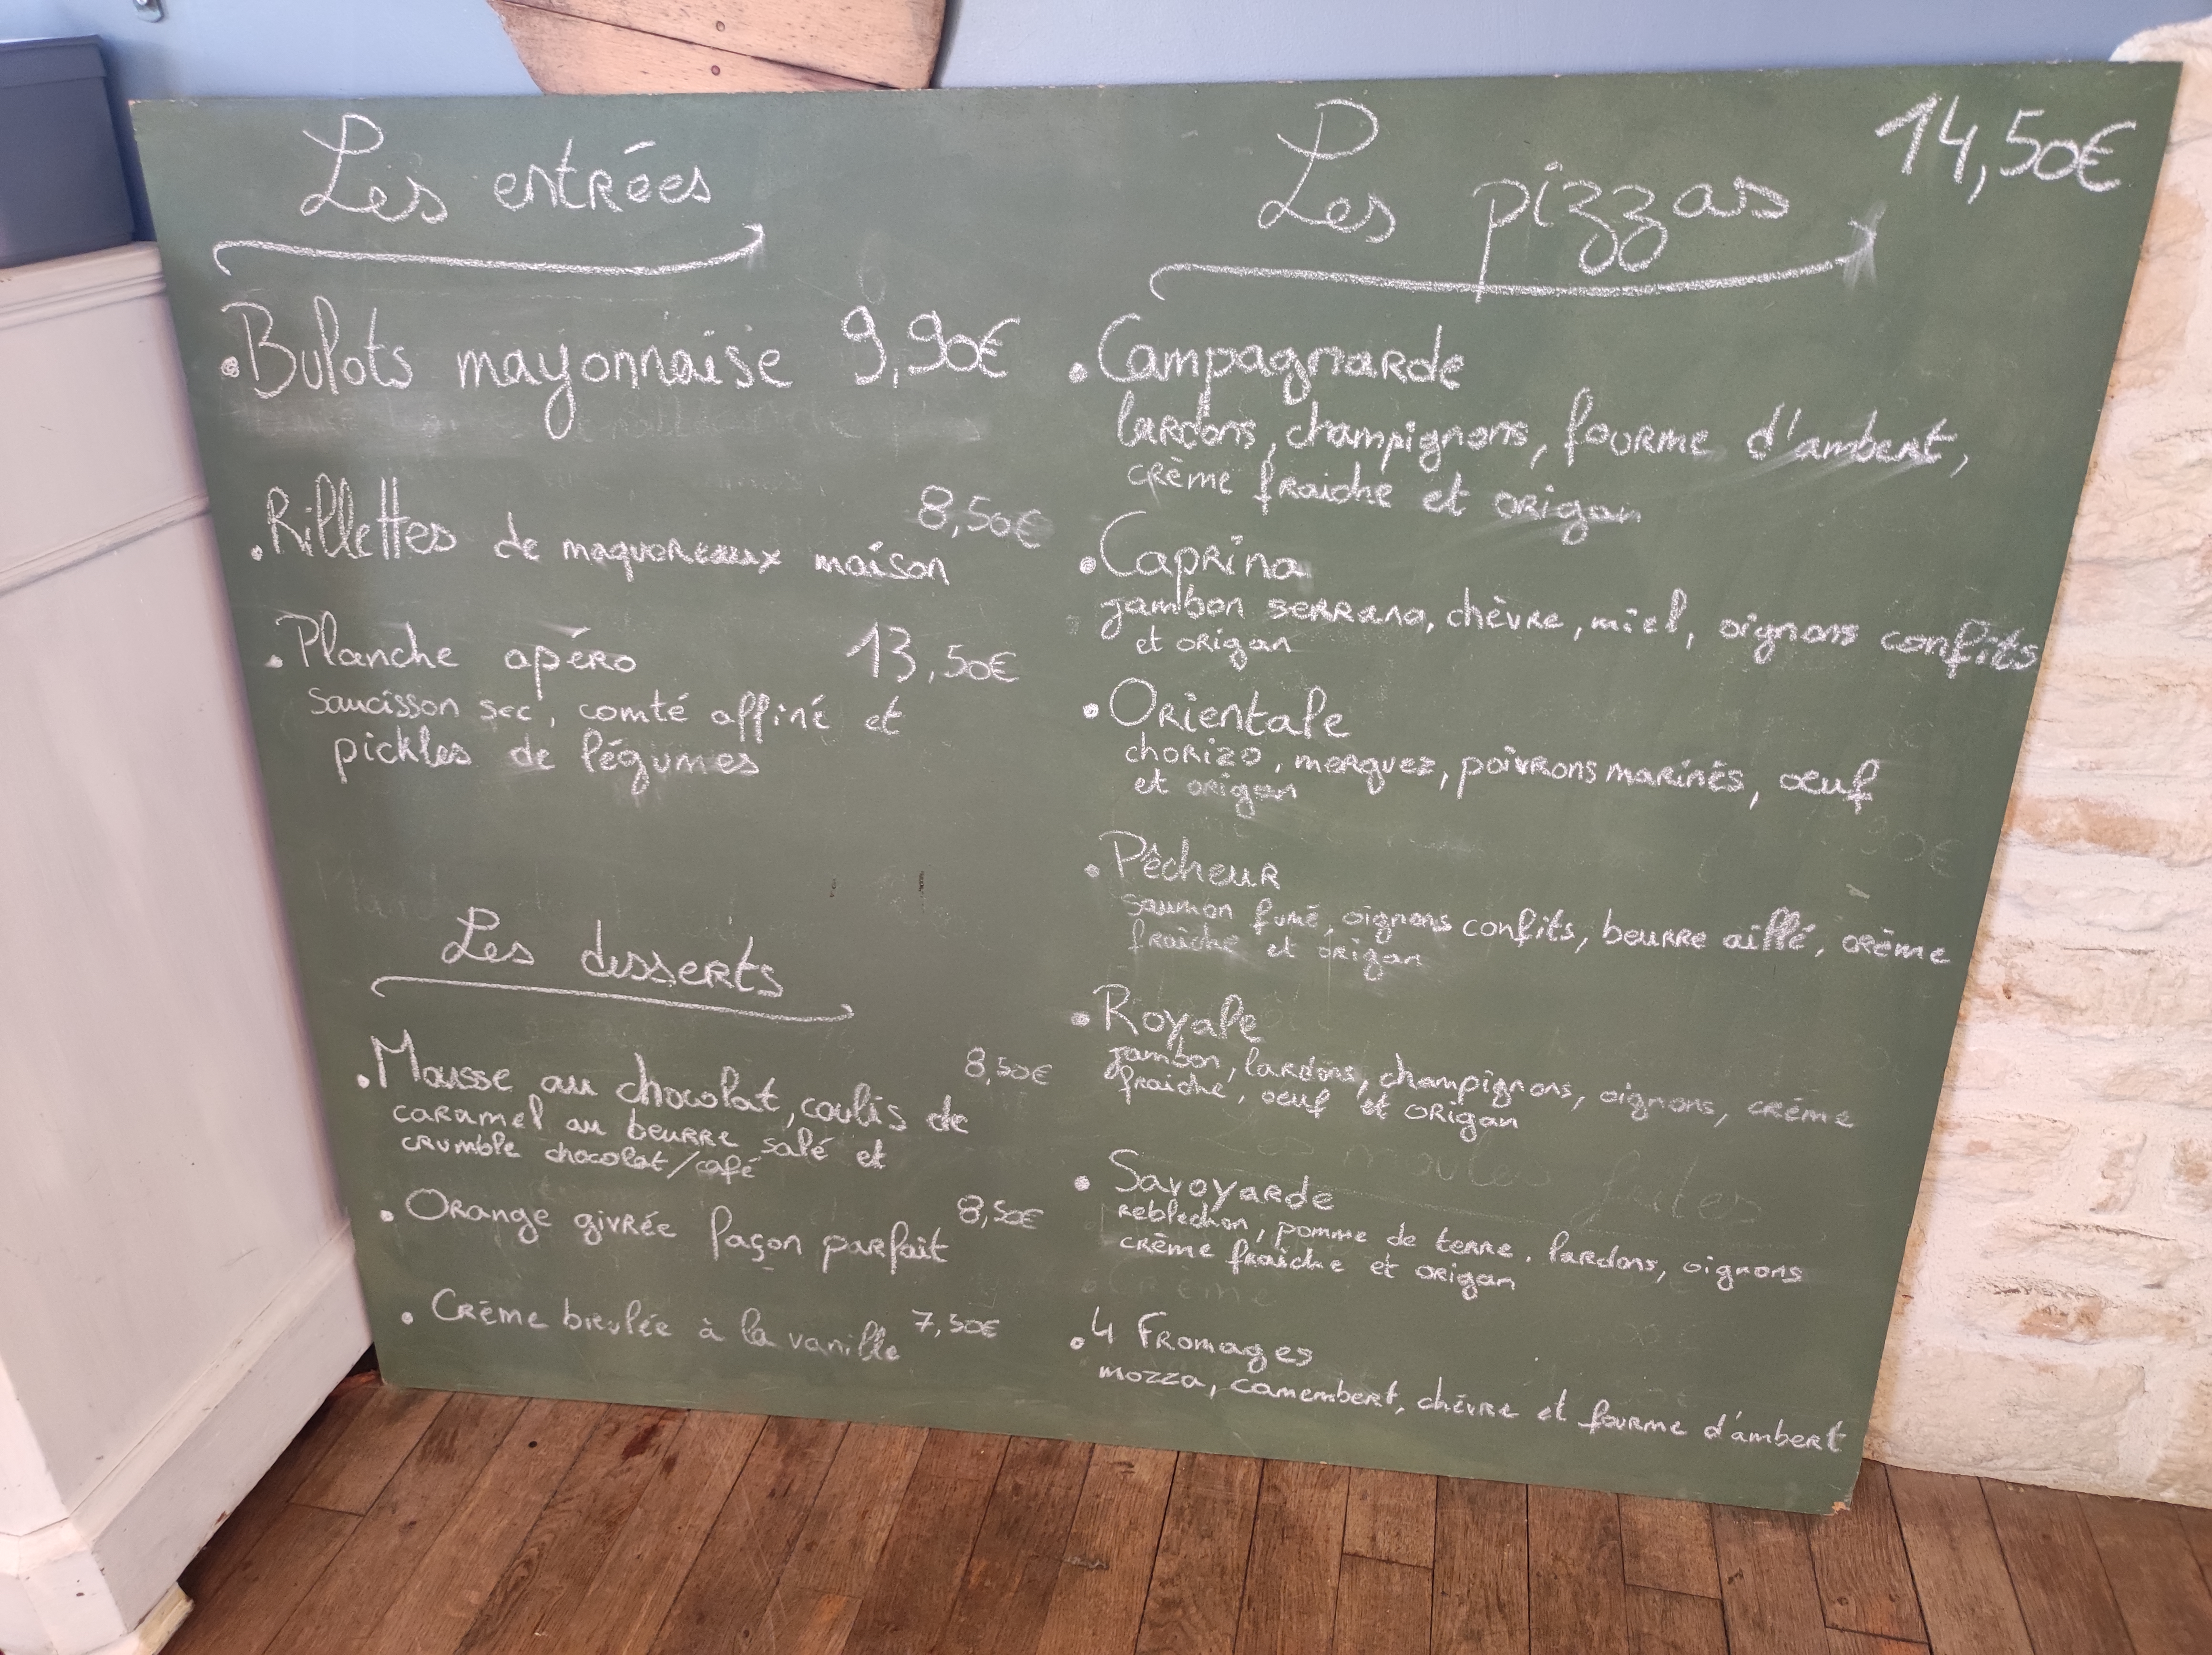 Les entrées
• Bulots mayonnaise 9,90€
• Rillettes de maquereaux maison 8,50€
• Planche apéro 13,50€
saucisson sec, comté affiné et
pickles de légumes
Les desserts
• Mousse au chocolat, coulis de 8,50€
caramel au beurre salé et
crumble chocolat/café
• Orange givrée façon parfait 8,50€
• Crème brulée à la vanille 7,50€
Les pizzas 14,50€
• Campagnarde
lardons, champignons, fourme d'ambert,
crème fraiche et origan
• Caprina
jambon serrano, chèvre, miel, oignons confits
et origan
• Orientale
chorizo, merguez, poivrons marinés, oeuf
et origan
• Pêcheur
saumon fumé, oignons confits, beurre aillé, crème
fraiche et origan
• Royale
jambon, lardons, champignons, oignons, crème
fraiche, oeuf et origan
• Savoyarde
reblochon, pomme de terre, lardons, oignons
crème fraiche et origan
• 4 Fromages
mozza, camembert, chèvre et fourme d'ambert